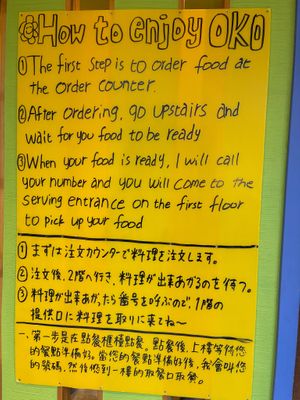 How to enjoy OKO
① The first step is to order food at
the order counter.
② After ordering, go upstairs and
wait for you food to be ready
③ When your food is ready, I will call
your number and you will come to the
serving entrance on the first floor
to pick up your food
① まずは注文カウンターで料理を注文します。
② 注文後、2階へ行き、料理が出来あがるのを待つ。
③ 料理が出来あがったら番号を呼ぶので、1階の
提供口に料理を取りに来てね〜
第一步是在點餐櫃檯點餐。點餐後、上樓等待您
的餐點準備好。當您的餐點準備好後、我會叫您
的號碼、然後您到一樓的取餐口取餐。